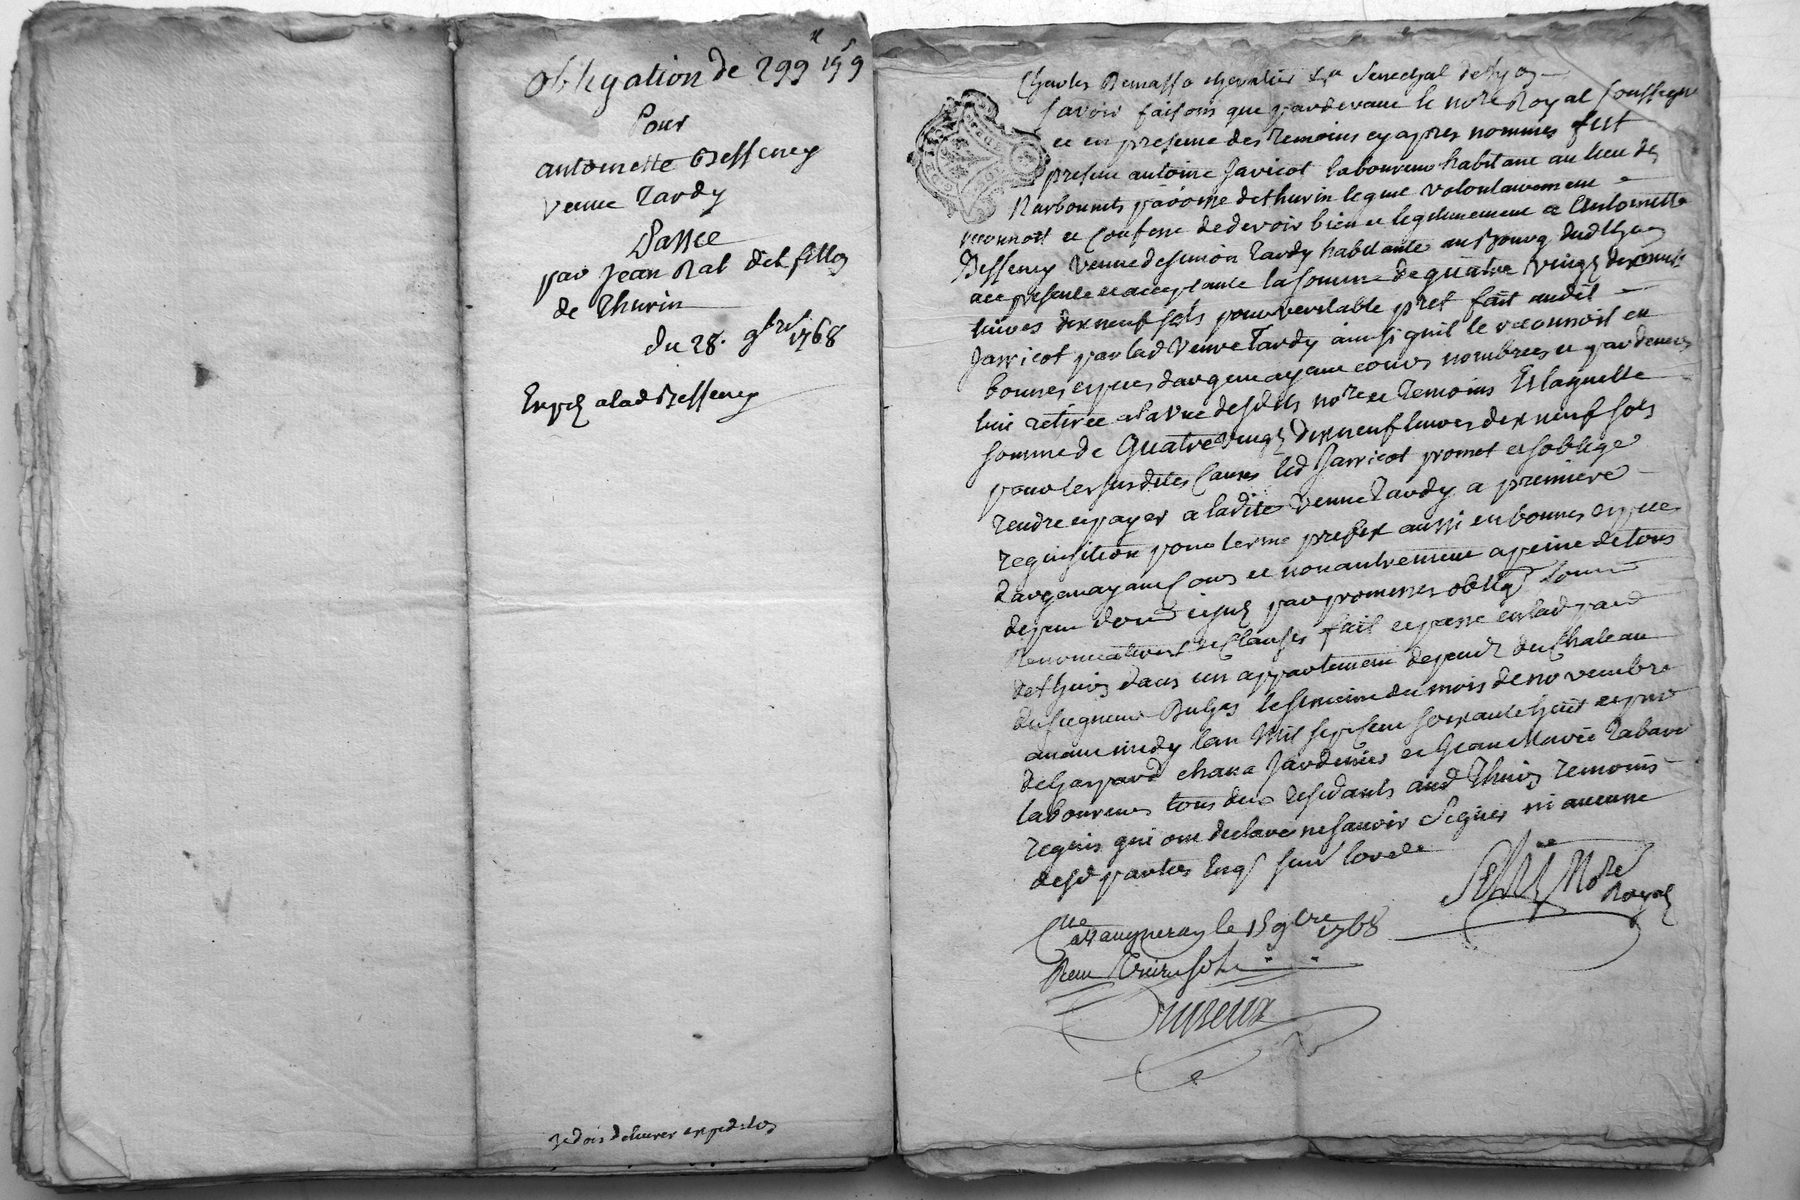 obligation de 299# 19s 9
Pour
antoinette Besseney
veuve Tardy
Passée
par Jean Rat dit fillon
de Thurin
du 28. 9bre 1768
Exped a lad Besseney
Je dois delivrer expedition
Charles Demasso chevalier Senechal de Lyon
Savoir faisons que pardevant le nore Royal soussigné
et en presence des temoins cy apres nommés fut
present antoine Jarricot laboureur habitant au lieu des
Narbonnets paroisse de thurin lequel volontairement
reconnoit et confesse de devoir bien et legitimement a Antoinette
Besseney veuve de simon Tardy habitante au Bourg dud thurin
acy presente et acceptante la somme de quatre vingt dix neuf
livres dix neuf sols pour veritable pret fait audit
Jarricot par lad veuve Tardy ainsi quil le reconnoit en
bonnes especes dargent ayant cours nombrées et par devers
luy retirée a la vue desdits nore et temoins Et laquelle
somme de Quatre vingt dix neuf livres dix neuf sols
pour les susdites causes led Jarricot promet et soblige
rendre et payer a ladite veuve Tardy a premiere
requisition pour terme prefix aussi en bonnes especes
dargent ayant cours et non autrement a peine de tous
depens par promesses oblig
Renonciations et Clauses fait et passé en lad
de thurin dans un appartement depend du Chateau
du seigneur du mois de novembre
avant midy lan Mil sept cent soixante huit en
de Gaspard chana Jardinier et Jean Marie Tabard
laboureur tous deux residants aud Thurin temoins
requis qui ont declaré ne sçavoir signer ni aucune
desd parties Enqs
nore
Royal
Clle a Vaugneray le 15 9bre 1768
Reçu treize sols
Dupreux